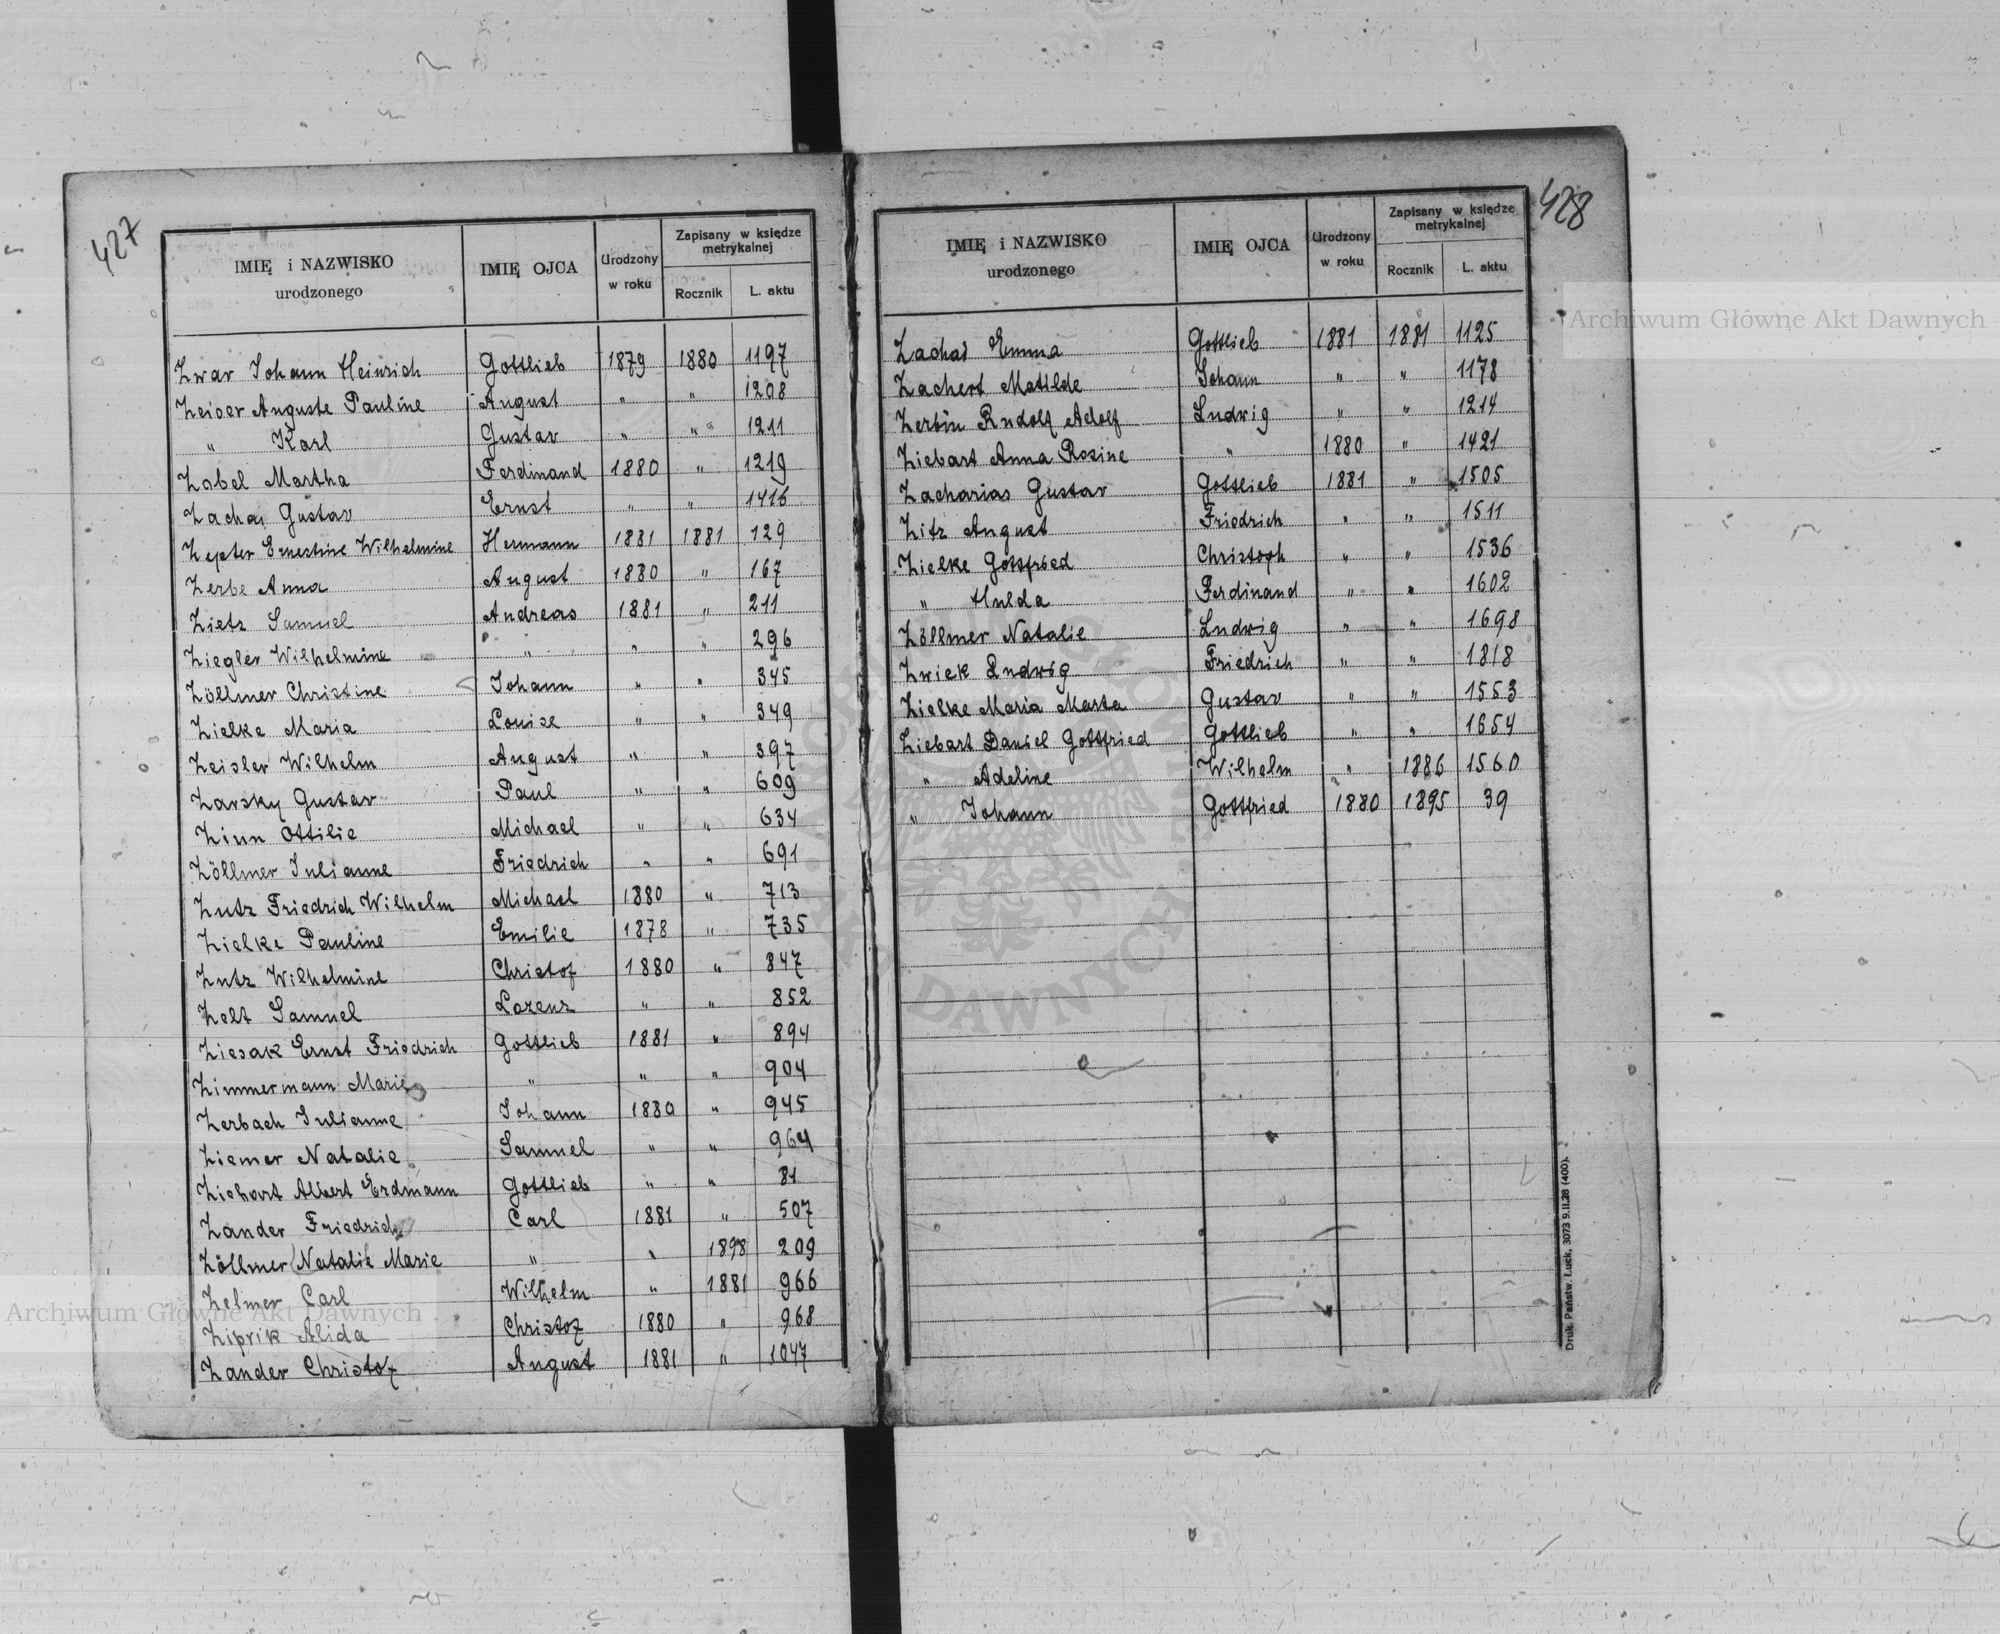 427
IMIĘ i NAZWISKO urodzonego IMIĘ OJCA Urodzony w roku Zapisany w księdze metrykalnej Rocznik L. aktu
Zwar Johann Heinrich Gottlieb 1879 1880 1197
Zeiser Auguste Pauline August " " 1208
" Karl Gustav " " 1211
Zabel Martha Ferdinand 1880 " 1219
Zachas Gustav Ernst " " 1416
Zepter Ernestine Wilhelmine Hermann 1881 1881 129
Zerbe Anna August 1880 " 167
Zietz Samuel Andreas 1881 " 211
Ziegler Wilhelmine " " " 296
Zöllmer Christine Johann " " 345
Zielke Maria Louise " " 349
Zeisler Wilhelm August " " 397
Zarsky Gustav Paul " " 609
Zinn Ottilie Michael " " 634
Zöllmer Julianne Friedrich " " 691
Zutz Friedrich Wilhelm Michael 1880 " 713
Zielke Pauline Emilie 1878 " 735
Zutz Wilhelmine Christof 1880 " 847
Zelt Samuel Lorenz " " 852
Ziesak Ernst Friedrich Gottlieb 1881 " 894
Zimmermann Marie " " " 904
Zerbach Julianne Johann 1880 " 945
Ziemer Natalie Samuel " " 964
Ziebart Albert Erdmann Gottlieb " " 81
Zander Friedrich Carl 1881 " 507
Zöllmer Natalie Marie " " 1898 209
Zelmer Carl Wilhelm " 1881 966
Ziprik Alida Christof 1880 " 968
Zander Christof August 1881 " 1047
428
IMIĘ i NAZWISKO urodzonego IMIĘ OJCA Urodzony w roku Zapisany w księdze metrykalnej Rocznik L. aktu
Zachas Emma Gottlieb 1881 1881 1125
Zachert Matilde Johann " " 1178
Zerbin Rudolf Adolf Ludwig " " 1214
Ziebart Anna Rosine " 1880 " 1421
Zacharias Gustav Gottlieb 1881 " 1505
Zitz August Friedrich " " 1511
Zielke Gottfried Christoph " " 1536
" Hulda Ferdinand " " 1602
Zöllmer Natalie Ludwig " " 1698
Zwiek Ludwig Friedrich " " 1818
Zielke Maria Marta Gustav " " 1553
Ziebart Daniel Gottfried Gottlieb " " 1654
" Adeline Wilhelm " 1886 1560
" Johann Gottfried 1880 1895 39
Druk. Państw. Łuck, 3073 9.II.28 (400).
Archiwum Główne Akt Dawnych
Archiwum Główne Akt Dawnych